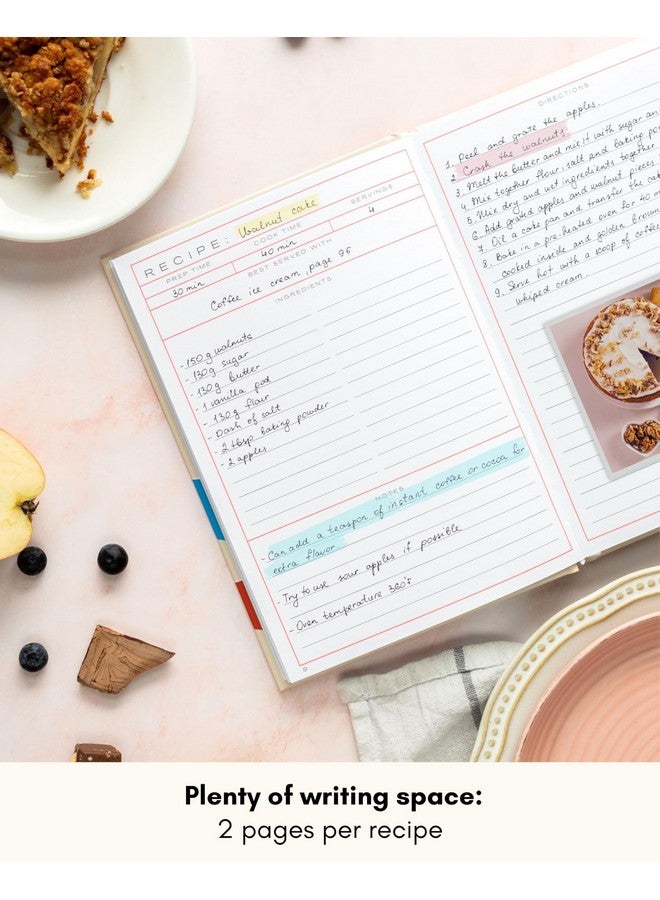 RECIPE: Walnut cake
PREP TIME
COOK TIME
SERVINGS
30 min
40 min
4
BEST SERVED WITH
Coffee ice cream, page 95
INGREDIENTS
- 150 g walnuts
- 130g sugar
- 130g butter
- 1 vanilla pod
- 130g flour
- Dash of salt
- 2 tbsp baking powder
- 2 apples
NOTES
- Can add a teaspon of instant coffee or cocoa for
extra flavor.
- Try to use sour apples if possible
- Oven temperature 380°F
DIRECTIONS
1. Peel and grate the apples.
2. Crash the walnuts.
3. Melt the butter and mix it with sugar an
4. Mix together flour, salt and baking po
5. Mix dry and wet ingredients together
6. Add grated apples and walnut pieces
7. Oil a cake pan and transfer the cak
8. Bake in a pre heated oven for 40 m
cooked inside and golden brown
9. Serve hot with a scoop of coffee
whiped cream.
Plenty of writing space:
2 pages per recipe